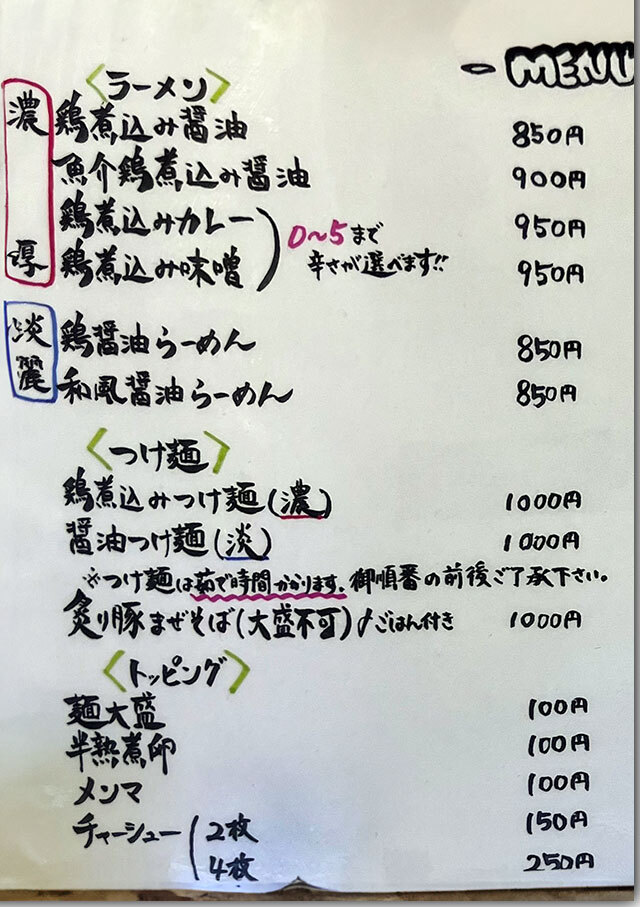 - MENU
〈ラーメン〉
濃厚
鶏煮込み醤油 850円
魚介鶏煮込み醤油 900円
鶏煮込みカレー 950円
鶏煮込み味噌 950円
0〜5まで
辛さが選べます!!
淡麗
鶏醤油らーめん 850円
和風醤油らーめん 850円
〈つけ麺〉
鶏煮込みつけ麺(濃) 1000円
醤油つけ麺(淡) 1000円
※つけ麺は茹で時間かかります。御順番の前後ご了承下さい。
炙り豚まぜそば(大盛不可)♪ごはん付き 1000円
〈トッピング〉
麺大盛 100円
半熟煮卵 100円
メンマ 100円
チャーシュー 2枚 150円
4枚 250円